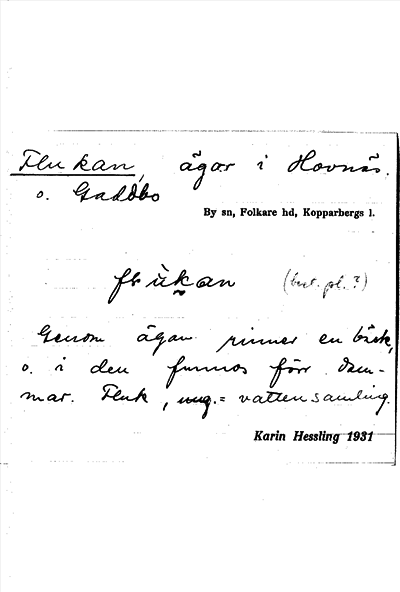 Flukan, ägor i Hovnäs
o. Gaddbo
By sn, Folkare hd, Kopparbergs l.
flu̇kan (best. pl.?)
Genom ägan rinner en bäck,
o. i den funnos förr dam-
mar. Fluk, ung. = vattensamling.
Karin Hessling 1931